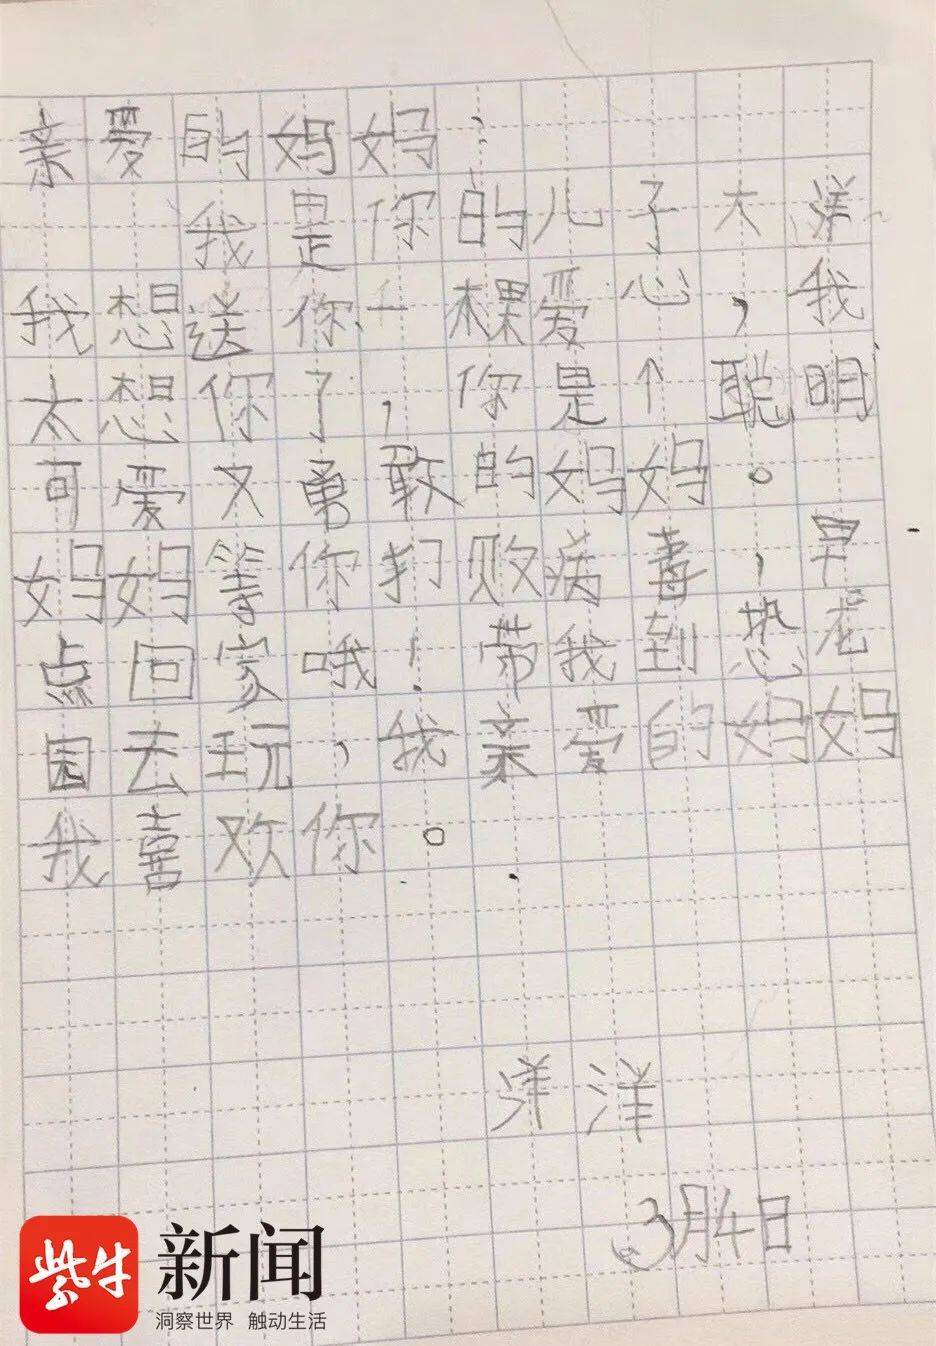 亲爱的妈妈：
我是你的儿子大洋
我想送你一棵爱心，我
太想你了，你是个聪明
可爱又勇敢的妈妈。
妈妈等你打败病毒，早
点回家哦！带我到恐龙
园去玩，我亲爱的妈妈
我喜欢你。
洋洋
3月4日
紫牛
新闻
洞察世界 触动生活